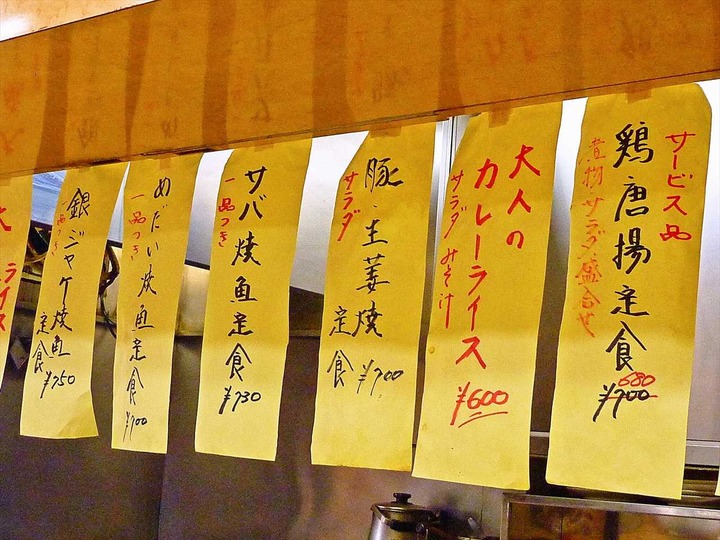 サービス品
鶏唐揚定食
煮物 サラダ盛合せ
680
¥700
大人の
カレーライス
サラダ みそ汁
¥600
豚・生姜焼
定食
サラダ
¥700
サバ焼魚定食
一品つき
¥730
めだい焼魚定食
一品つき
¥700
銀ジャケ焼魚
定食
一品つき
¥750
大
ライス